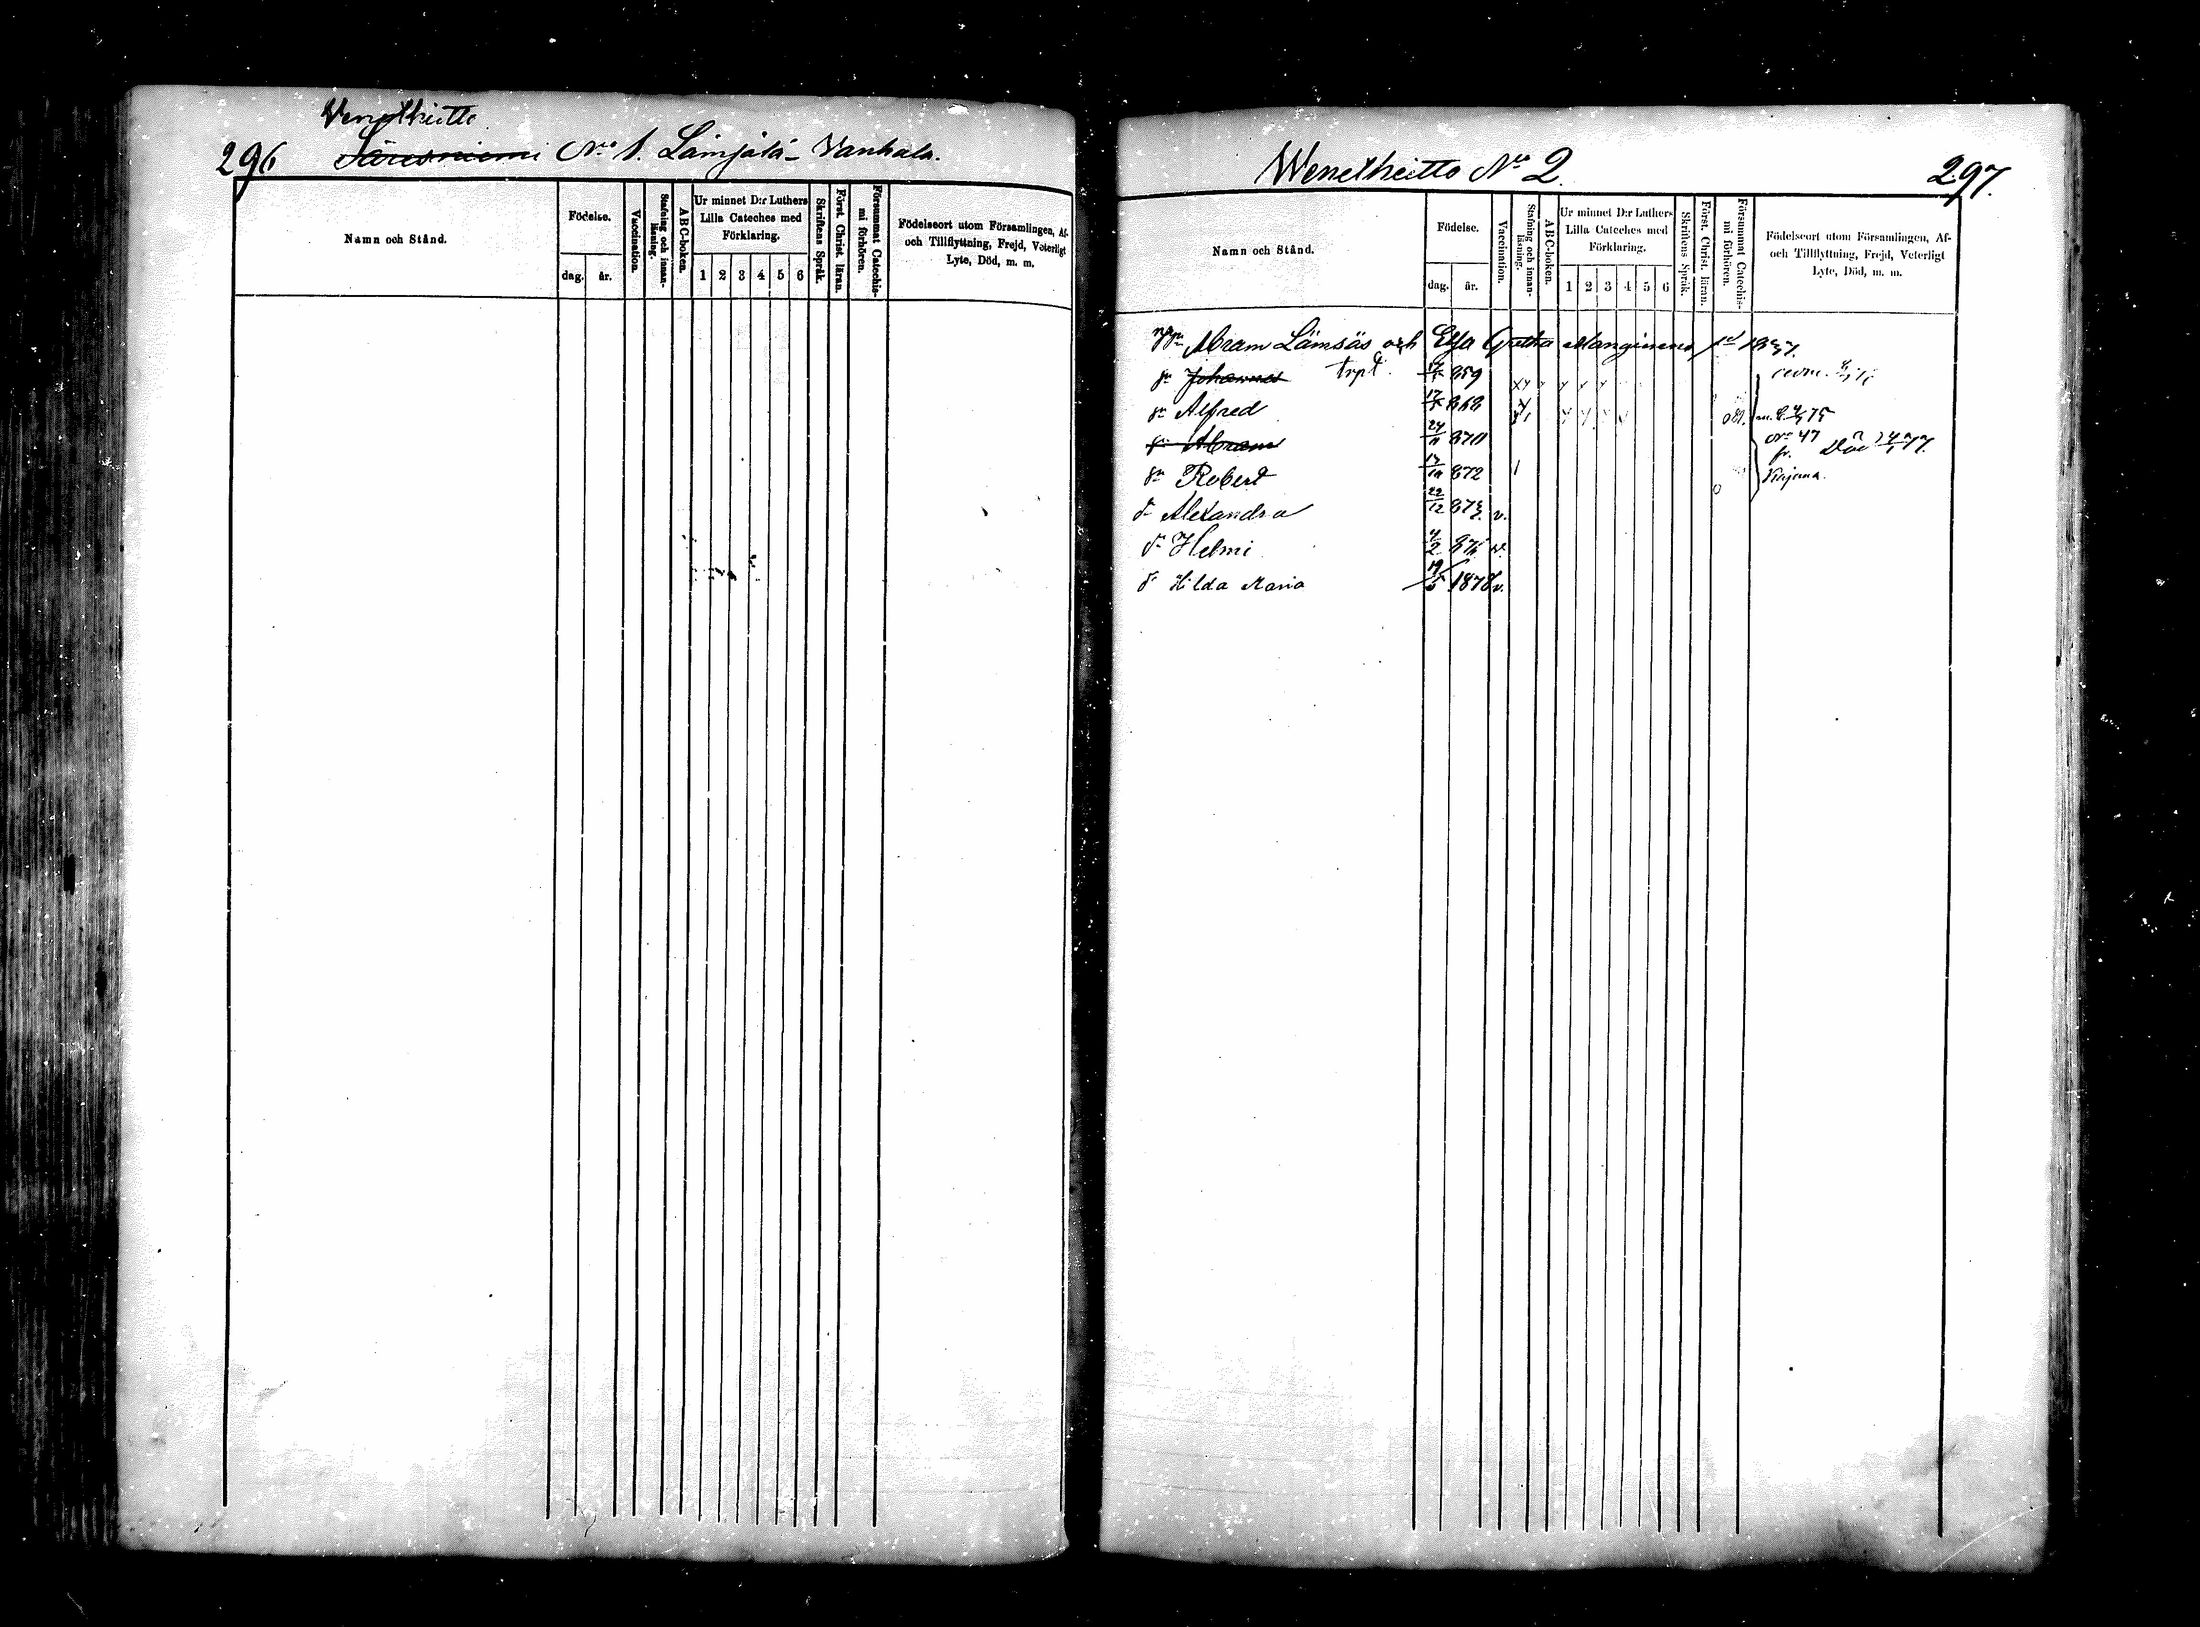 Venetheitto
296 Säresniemi No 1. Lämjälä - Vanhala.
Namn och Stånd.
Födelse.
dag. år.
Vaccination.
Stafning och innan-läsning.
ABC-boken.
Ur minnet D:r Luthers
Lilla Cateches med
Förklaring.
1 2 3 4 5 6
Skriftens Språk.
Först. Christ. läran.
Försummat Catechis-mi förhören.
Födelseort utom Församlingen, Af-
och Tillflyttning, Frejd, Veterligt
Lyte, Död, m. m.
Wenetheitto No 2. 297.
Namn och Stånd.
Födelse.
dag. år.
Vaccination.
Stafning och innan-läsning.
ABC-boken.
Ur minnet D:r Luthers
Lilla Cateches med
Förklaring.
1 2 3 4 5 6
Skriftens Språk.
Först. Christ. läran.
Försummat Catechis-mi förhören.
Födelseort utom Församlingen, Af-
och Tillflyttning, Frejd, Veterligt
Lyte, Död, m. m.
Abram Lämsäs och Elsa Gretha Manginens
sn Johannes 859
sn Alfred 868
sn Abram 24/11 870
No 47
sn Robert 872
Kajana.
dr Alexandra 22/12 873 v.
dr Helmi 4/2 876 v.
dr Hilda Maria 19/5 1878 v.